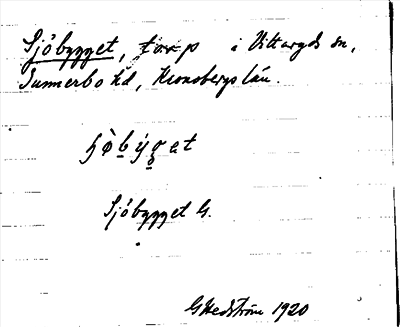 Sjöbygget, torp i Vittaryds sn,
Sunnerbo hd, Kronobergs län.
ɧö̀býget
Sjöbygget G.
G Hedström 1920